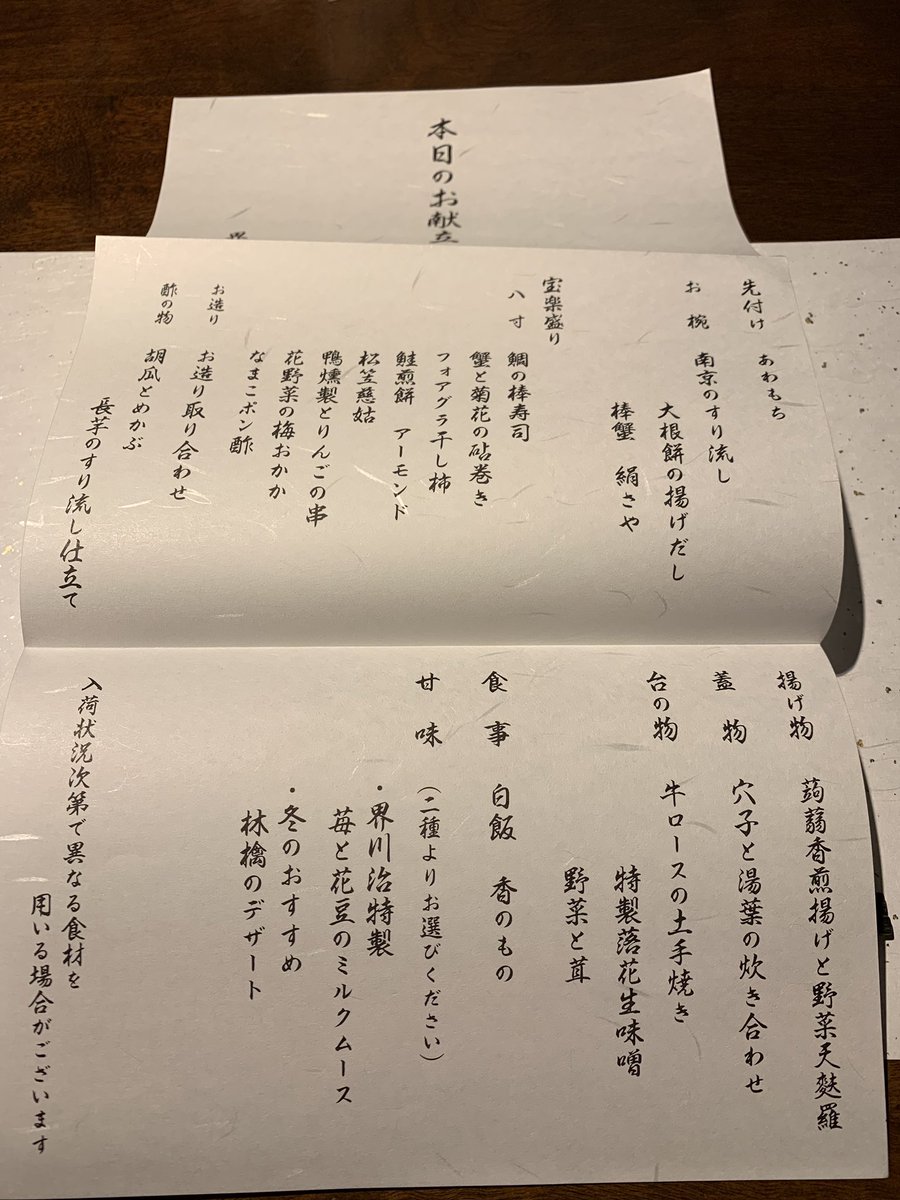 本日のお献立
先付け　あわもち
お椀　南京のすり流し
大根餅の揚げだし
棒蟹　絹さや
宝楽盛り
八寸　鯛の棒寿司
蟹と菊花の砧巻き
フォアグラ干し柿
鮭煎餅　アーモンド
松笠慈姑
鴨燻製とりんごの串
花野菜の梅おかか
なまこポン酢
お造り　お造り取り合わせ
酢の物　胡瓜とめかぶ
長芋のすり流し仕立て
揚げ物　蒟蒻香煎揚げと野菜天麩羅
蓋物　穴子と湯葉の炊き合わせ
台の物　牛ロースの土手焼き
特製落花生味噌
野菜と茸
食事　白飯　香のもの
甘味　（二種よりお選びください）
・界川治特製
苺と花豆のミルクムース
・冬のおすすめ
林檎のデザート
入荷状況次第で異なる食材を
用いる場合がございます